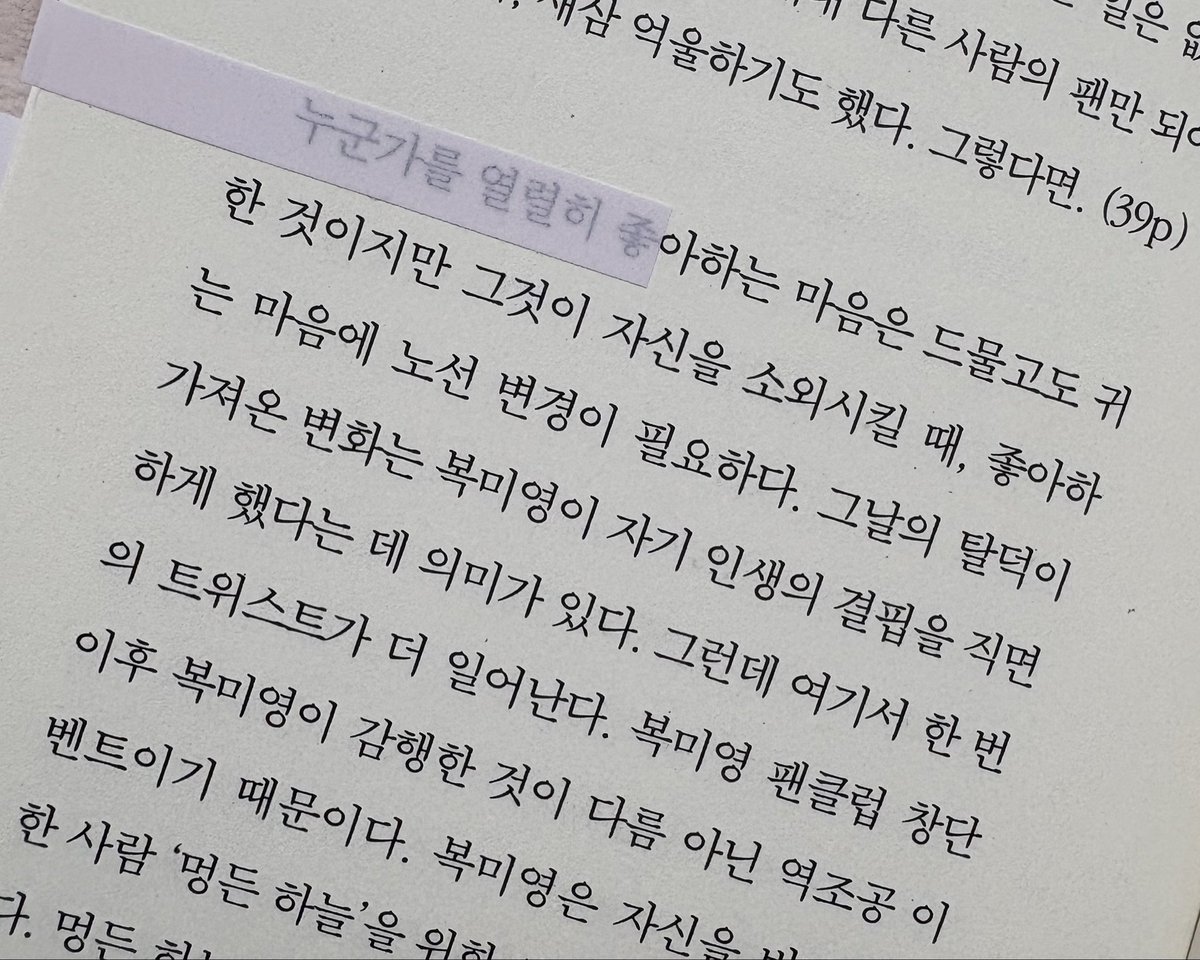 일은
다른 사람의 팬만
새삼 억울하기도 했다. 그렇다면. (39p)
누군가를 열렬히 좋아하는 마음은 드물고도 귀
한 것이지만 그것이 자신을 소외시킬 때, 좋아하
는 마음에 노선 변경이 필요하다. 그날의 탈덕이
가져온 변화는 복미영이 자기 인생의 결핍을 직면
하게 했다는 데 의미가 있다. 그런데 여기서 한 번
의 트위스트가 더 일어난다. 복미영 팬클럽 창단
이후 복미영이 감행한 것이 다름 아닌 역조공 이
벤트이기 때문이다. 복미영은 자신을
한 사람 ‘멍든 하늘’을
다. 멍든